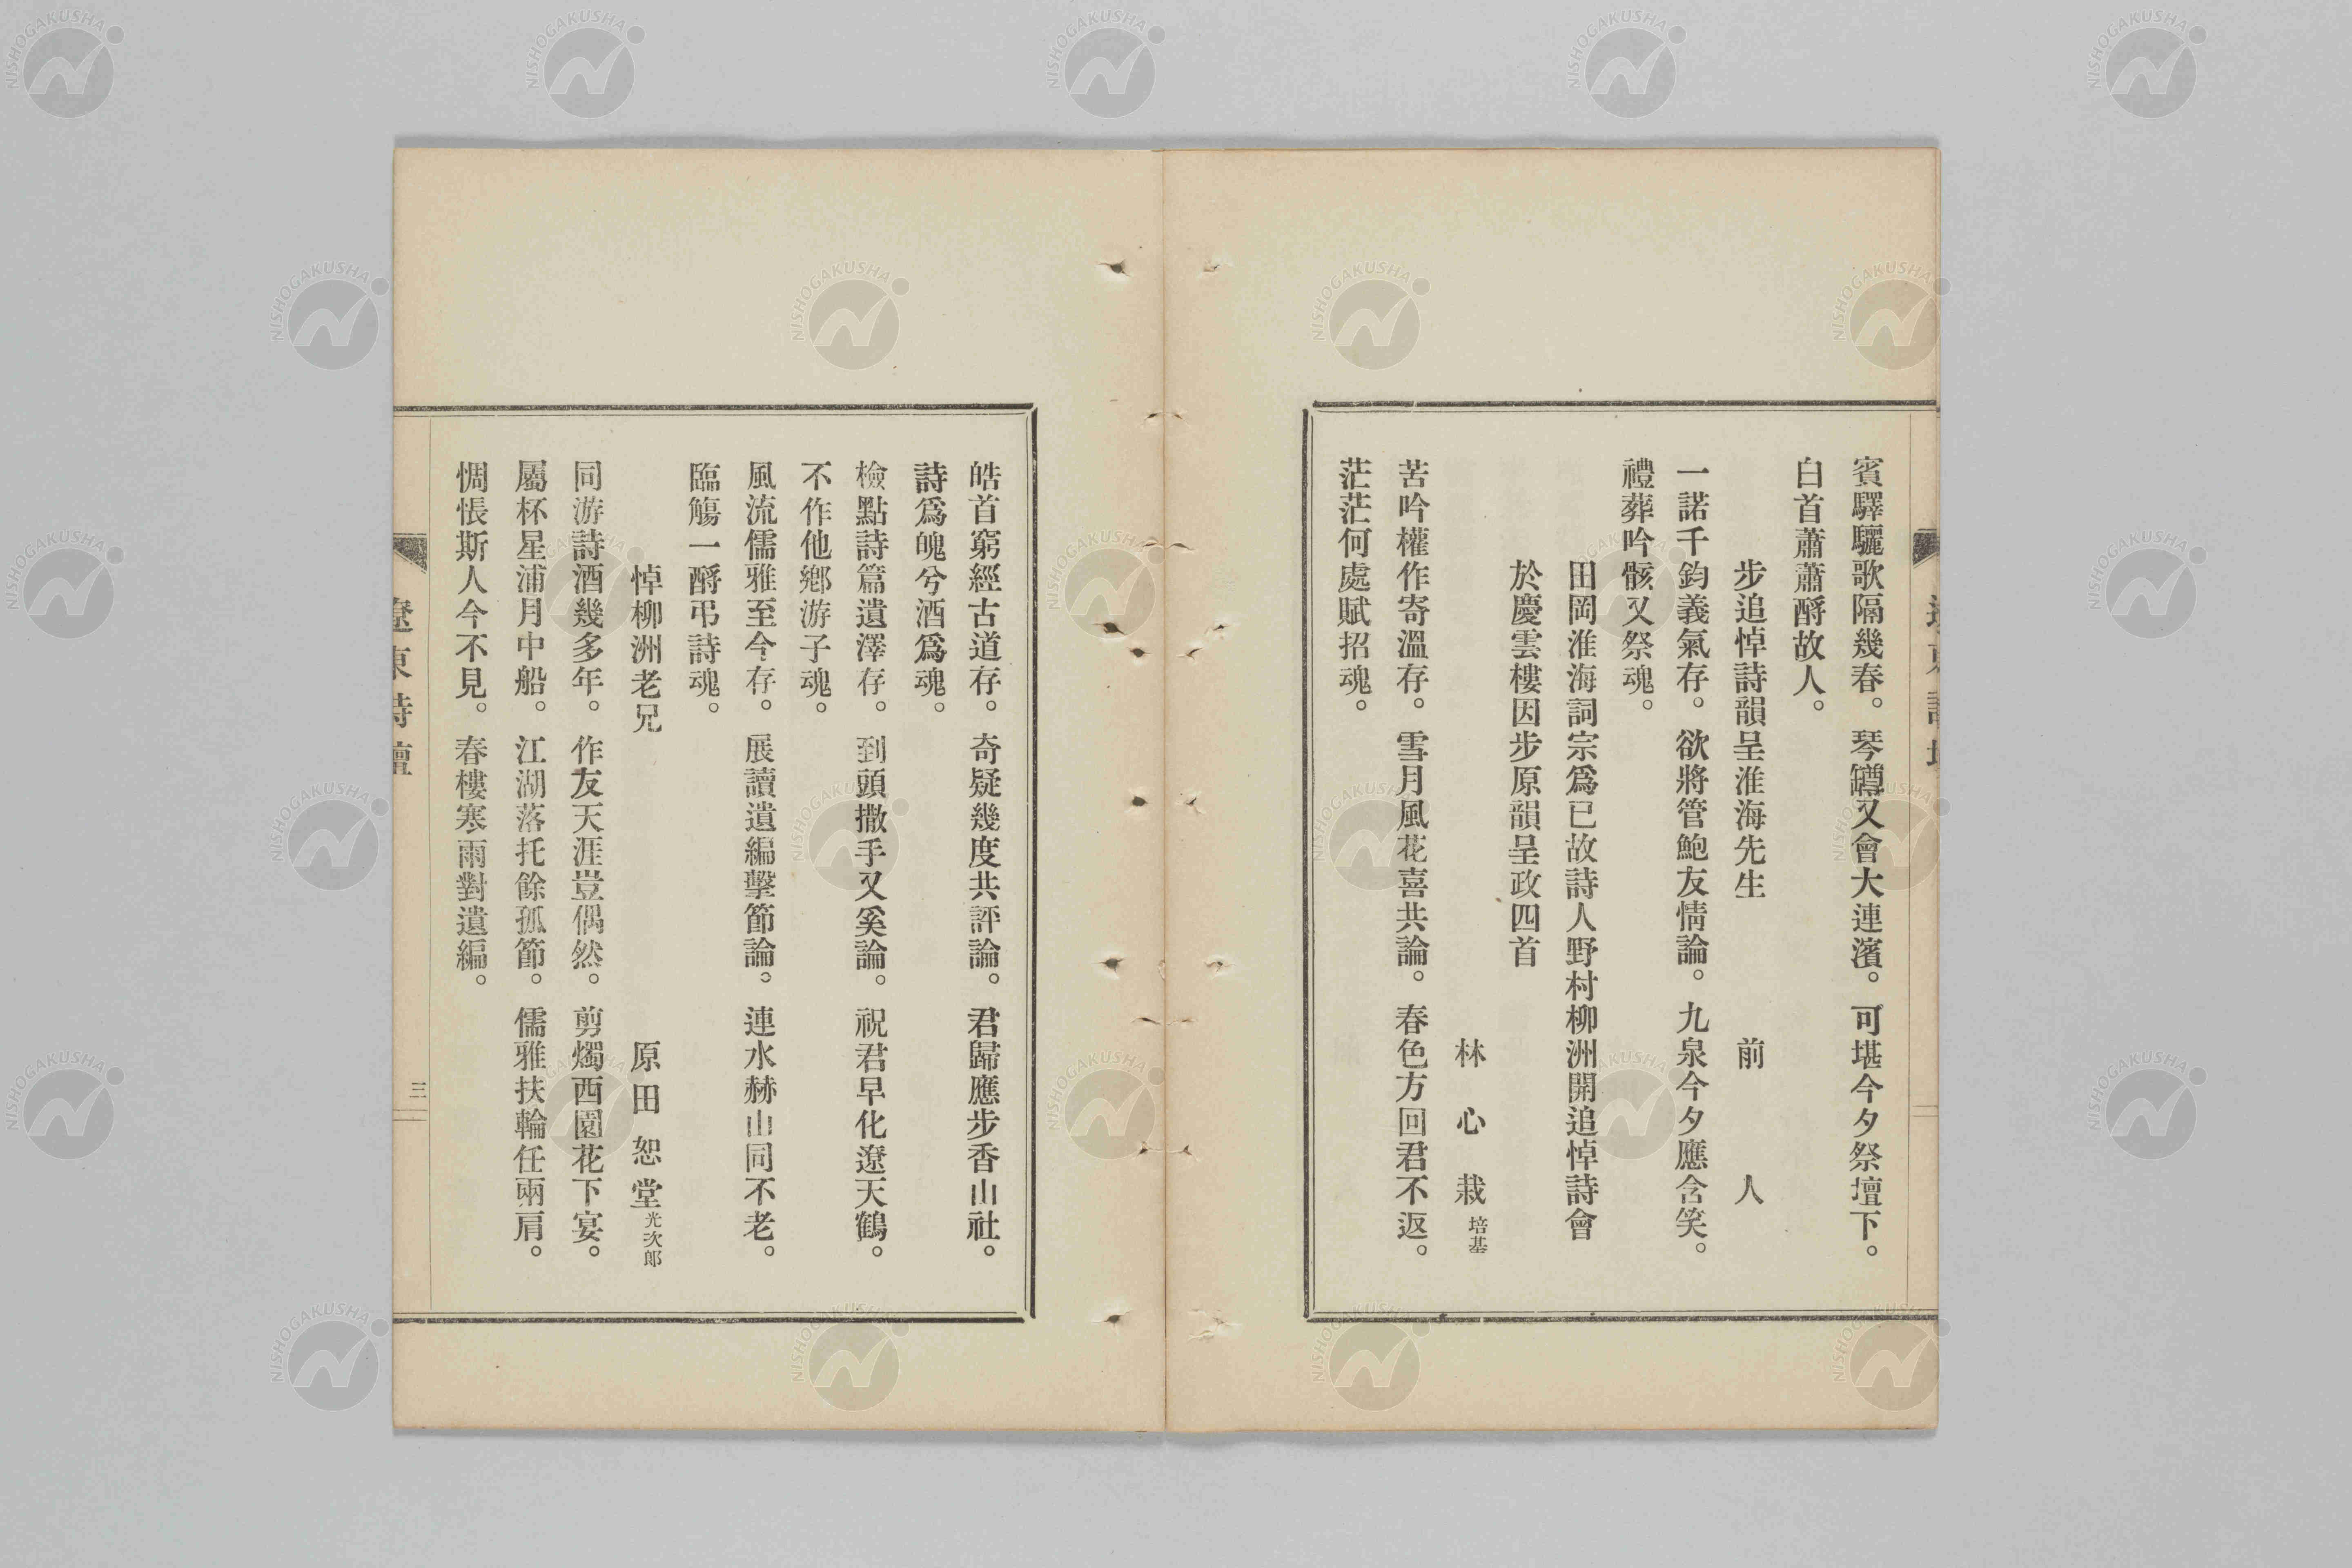 賓驛驪歌隔幾春。琴罇又會大連濱。可堪今夕祭壇下。
白首蕭蕭酹故人。
步追悼詩韻呈淮海先生　前人
一諾千鈞義氣存。欲將管鮑友情論。九泉今夕應含笑。
禮葬吟骸又祭魂。
田岡淮海詞宗爲已故詩人野村柳洲開追悼詩會
於慶雲樓因步原韻呈政四首
林心栽 培基
苦吟權作寄溫存。雪月風花喜共論。春色方回君不返。
茫茫何處賦招魂。
皓首窮經古道存。奇疑幾度共評論。君歸應步香山社。
詩爲魄兮酒爲魂。
檢點詩篇遺澤存。到頭撒手又奚論。祝君早化遼天鶴。
不作他鄉游子魂。
風流儒雅至今存。展讀遺編擊節論。連水赫山同不老。
臨觴一酹弔詩魂。
悼柳洲老兄　原田恕堂 光次郎
同游詩酒幾多年。作友天涯豈偶然。剪燭西園花下宴。
屬杯星浦月中船。江湖落托餘孤節。儒雅扶輪任兩肩。
惆悵斯人今不見。春樓寒雨對遺編。
遼東詩壇
三
NISHOGAKUSHA